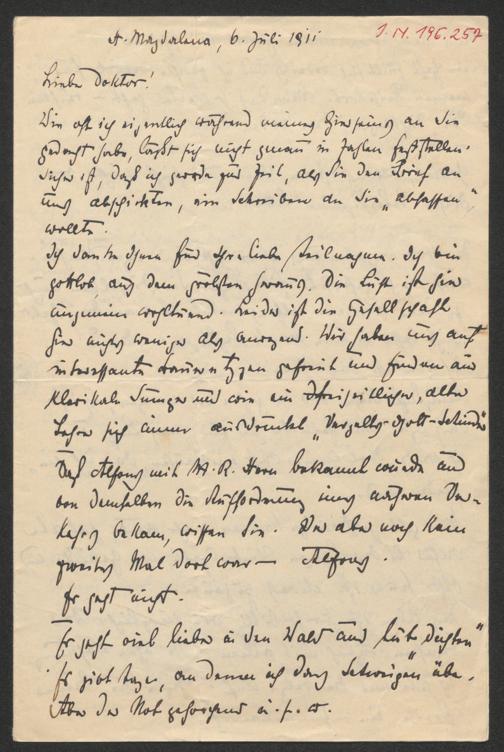 J.N. 196.257
St. Magdalena, 6. Juli 1911
Liebe Doktor!
Wie oft ich eigentlich während meines Hierseins an Sie
gedacht habe, läßt sich nicht genau in Zahlen feststellen.
Sicher ist, daß ich gerade zur Zeit, als Sie den Brief an
uns abschickten, ein Schreiben an Sie „abfassen"
wollte.
Ich danke Ihnen für Ihre liebe Teilnahme. Ich bin
gottlob aus dem größten heraus. Die Luft ist hier
ungemein wohltuend. Leider ist die Gesellschaft
hier nichts weniger als anregend. Wir haben uns auf
interessante Bauerntypen gefreut und finden nur
klerikale und wie ein Freisinniger, alter
Lehrer sich immer ausdrückt „Vergelts-Gott-Schinder"
Daß Alfons mit M. R. Stern bekannt wurde und
von demselben die Aufforderung eines näheren Ver-
kehrs bekam, wissen Sie. Wer aber noch kein
zweites Mal dort war — Alfons.
Er geht nicht.
Er geht viel lieber in den Wald und tut „dichten"
Er gibt Tage, an denen ich das Schweigen übe.
Aber der Not gehorchend u. s. w.